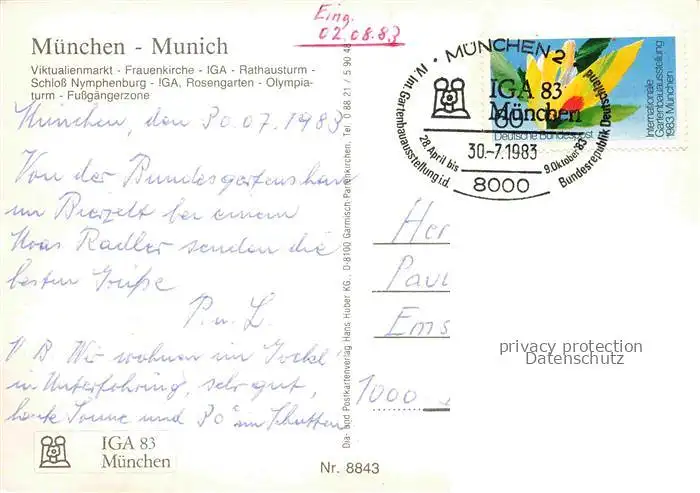 Eing.
02.08.83
München - Munich
Viktualienmarkt - Frauenkirche - IGA - Rathausturm -
Schloß Nymphenburg - IGA, Rosengarten - Olympia-
turm - Fußgängerzone
München, den 30.07.1983
Von der Bundesgartenschau
im Bierzelt bei einem
Mass Radler senden die
besten Grüße
P. u. L.
P B Wir wohnen im Gockl
in Unterföhring, sehr gut,
heute Sonne und 30° im Schatten
IGA 83
München
Dia- und Postkartenverlag Hans Huber KG., D-8100 Garmisch-Partenkirchen, Tel. 0 88 21 / 5 90 48
Nr. 8843
MÜNCHEN 2
IV. Int. Gartenbauausstellung i.d. Bundesrepublik Deutschland
IGA 83
München
28. April bis
9. Oktober 83
30.-7.1983
8000
80
Deutsche Bundespost
Internationale
Gartenbauausstellung
1983 München
Her
Paul
Ems
1000
privacy protection
Datenschutz